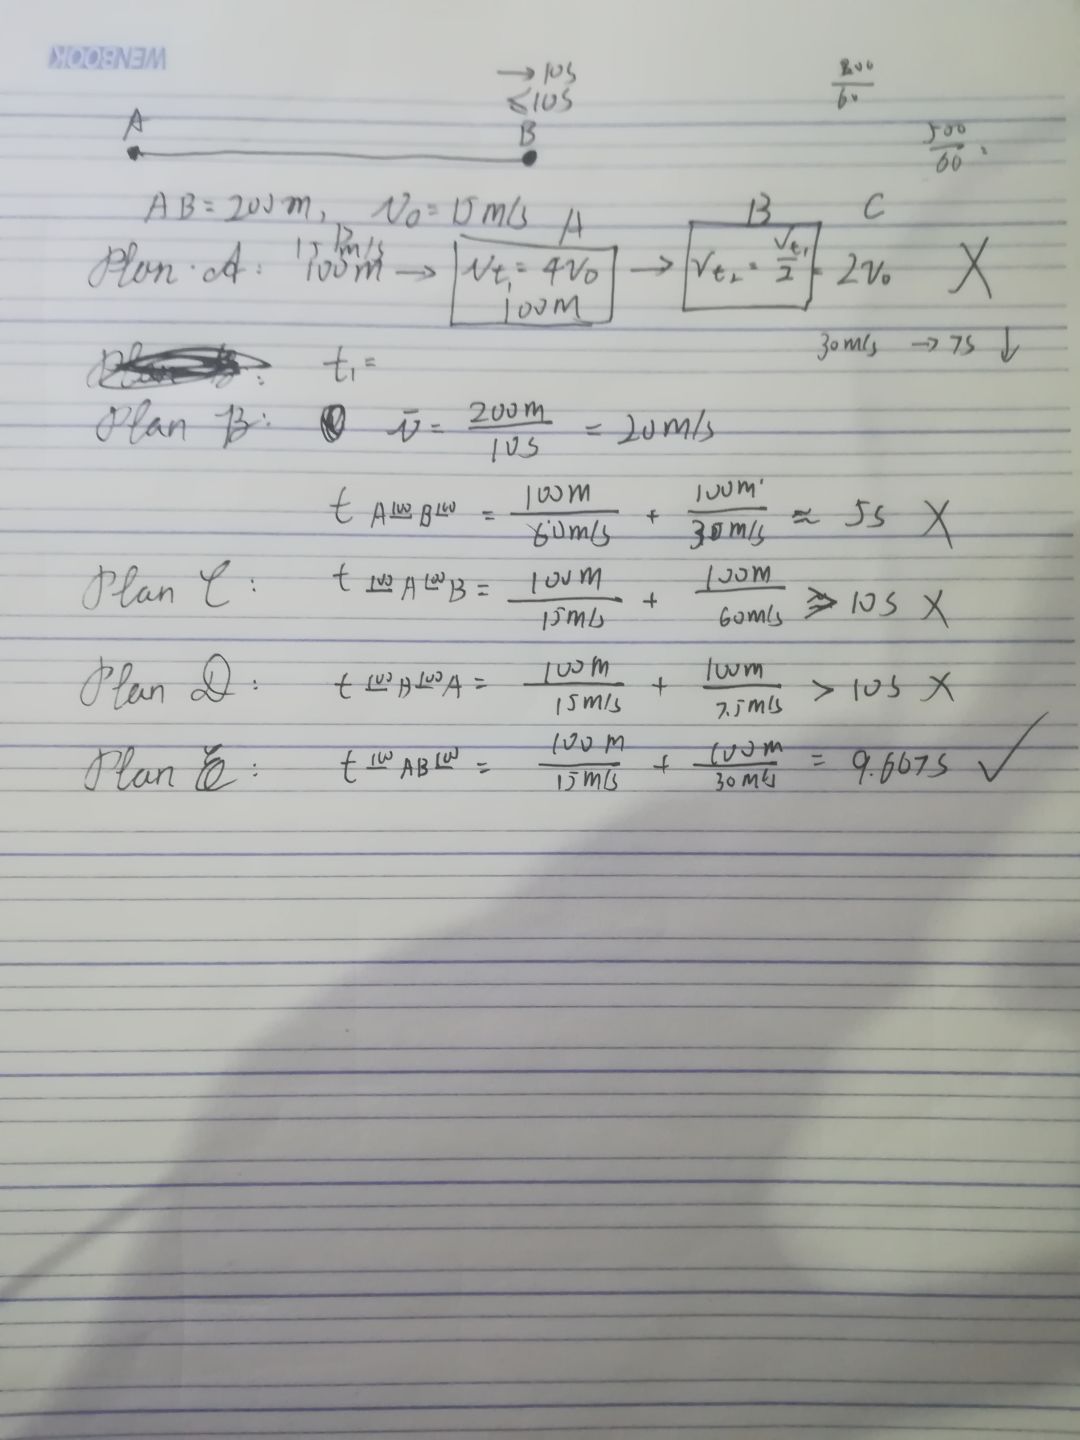 WENBOOK
→ 10s
≤10s
A B
200/60
500/60
AB = 200m, V₀ = 15m/s
A B C
Plan A: 15m/s 100m → Vt₁ = 4V₀ 100m → Vt₂ = Vt₁/2 = 2V₀ X
30m/s → 7s ↓
t₁ =
Plan B: v̄ = 200m/10s = 20m/s
t A100B100 = 100m/60m/s + 100m/30m/s ≈ 5s X
Plan C: t 100A100B = 100m/15m/s + 100m/60m/s ≥ 10s X
Plan D: t 100B100A = 100m/15m/s + 100m/7.5m/s > 10s X
Plan E: t 100AB100 = 100m/15m/s + 100m/30m/s = 9.667s ✓